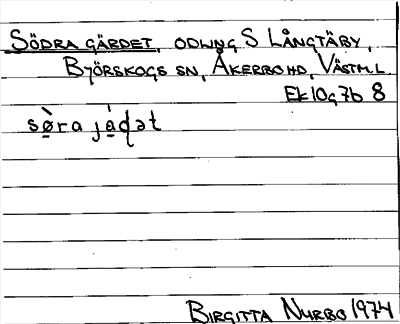 SÖDRA GÄRDET, ODLING S LÅNGTÄBY,
BJÖRSKOGS SN, ÅKERBO HD, VÄSTM.L.
Ek 10g7b 8
sø̀ra já̱ḍət
BIRGITTA NURBO 1974